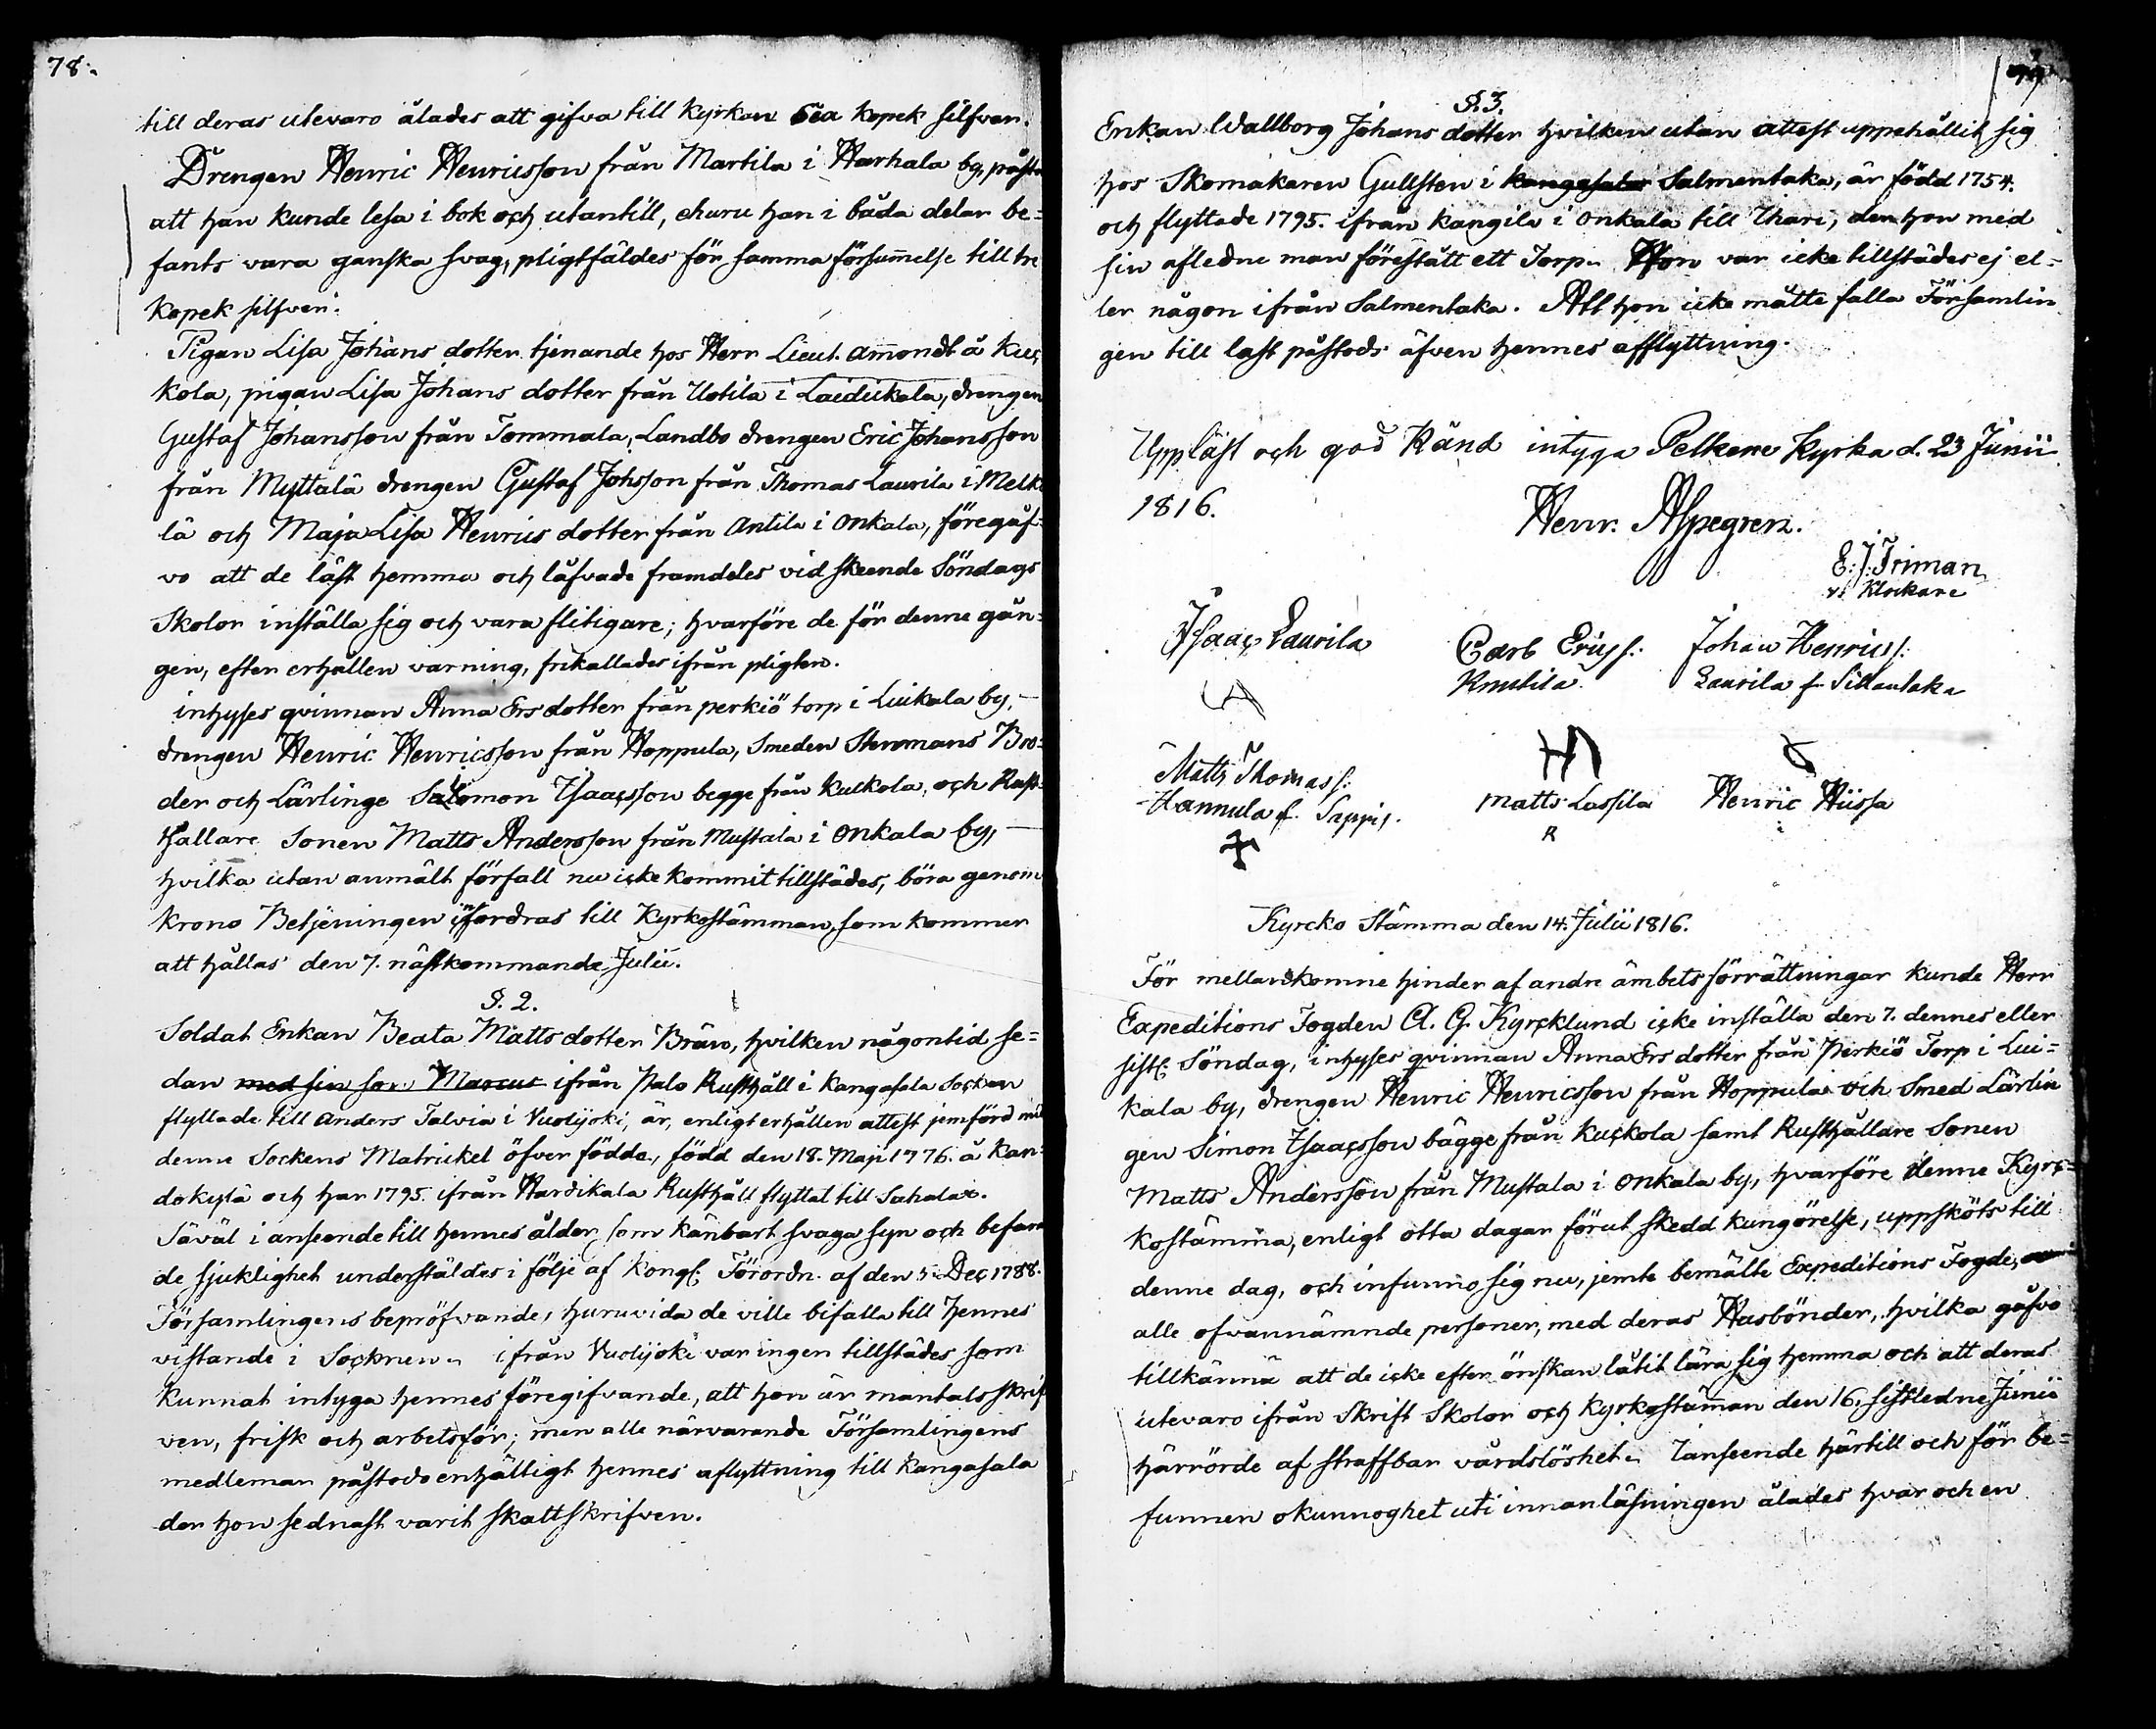 78.
till deras utevaro ålades att gifva till kyrkan kopek silfver.
Drengen Henric Henricsson från Martila i Harhala by, påst
att han kunde lesa i bok och utantill, ehuru han i båda delar be=
fants vara ganska svag, pligtfäldes för samma försummelse till tre
kopek silfver.
Pigan Lisa Johans dotter tjenande hos Herr Lieut. Ammondt å Kuc
kola, pigan Lisa Johans dotter från Uotila i Laidikala, drengen
Gustaf Johansson från Tommala, Landbo drengen Eric Johansson
från Myttälä drengen Gustaf Johsson från Thomas Laurila i Melk
lä och Maja Lisa Henrics dotter från Antila i Onkala, föregåf=
vo att de läst hemma och låfvade framdeles vid skeende Söndags
Skolor inställa sig och vara flitigare; hvarföre de för denne gån=
gen, efter erhållen varning, frikallades ifrån pligten.
inhyses qvinnan Anna Ers dotter från perkiö torp i Luikala by,
drengen Henric Henricsson från Hoppula, Smeden Stenmans Bro=
der och Lärlinge Salomon Isaacsson begge från Kuckola, och Rust=
hållare Sonen Matts Andersson från Mustala i Onkala by,
hvilka utan anmält förfall nu icke kommit tillstädes, böra genom
krono Betjeningen infordras till Kyrkostämman, som kommer
att hållas den 7. nästkommande Julii.
§. 2.
Soldat Enkan Beata Matts dotter Brån, hvilken någontid se=
dan med sin son Marcus ifrån Palo Rusthåll i Kangasala Socken
flyttade till Anders Talvia i Vuolijoki, är, enligt erhållen attest jemförd med
denne Sockens Matrickel öfver födde, född den 18. Maji 1776. å Kan=
dokylä och har 1795. ifrån Hardikala Rusthåll flyttat till Sahalax.
Såväl i anseende till hennes ålder som känbart svaga syn och befan
de sjuklighet understäldes i följe af Kongl. Förordn. af den 5. Dec 1788.
Församlingens bepröfvande, huruvida de ville bifalla till hennes
vistande i Socknen. ifrån Vuolijoki var ingen tillstädes som
kunnat intyga hennes föregifvande, att hon är mantalsskrif
ven, frisk och arbetsför; men alle närvarande Församlingens
medlemar påstodo enhälligt hennes aflyttning till Kangasala
der hon sednast varit skattskrifven.
79
§. 3.
Enkan Wallborg Johans dotter hvilken utan attest uppehållit sig
hos Skomakaren Gullsten i Kangasala Salmentaka, är född 1754.
och flyttade 1795. ifrån Kangila i Onkala till Ihari, der hon med
sin afledne man förestått ett Torp. Hon var icke tillstädes ej el=
ler någon ifrån Salmentaka. Att hon icke måtte falla Församlin
gen till last påstods äfven hennes afflyttning.
Uppläst och god Känd intyga Pelkene Kyrka d. 23 Junii
1816.
Henr. Alpegren.
E: J: Friman
v. Klockare
Isaac Laurila
Carl Erics:
Knutila
Johan Henrics:
Laurila f. Sillantaka
Matts Thomass:
Hannula f. Sappi
Matts Lassila
R
Henric Hiissa
Kyrcko Stämma den 14. Julii 1816.
För mellankomne hinder af andre ämbets förrättningar kunde Herr
Expeditions Fogden A. G. Kyrcklund icke inställa den 7. dennes eller
sistl. Söndag, inhyses qvinnan Anna Ers dotter från Perkiö Torp i Lui=
kala by, drengen Henric Henricsson från Hoppula och Smed Lärlin
gen Simon Isaacsson bägge från Kuckola samt Rusthållare Sonen
Matts Andersson från Mustala i Onkala by, hvarföre denne Kyrc=
kostämma, enligt otta dagar förut skedd kungörelse, uppsköts till
denne dag, och infunno sig nu, jemte bemälte Expeditions Fogde,
alle ofvannämnde personer, med deras Husbönder, hvilka gåfvo
tillkänna att de icke efter önskan låtit lära sig hemma och att deras
utevaro ifrån Skrift Skolor och Kyrkostämman den 16. sistledne Junii
härrörde af straffbar vårdslöshet. I anseende härtill och för be=
funnen okunnoghet uti innanläsningen ålades hvar och en